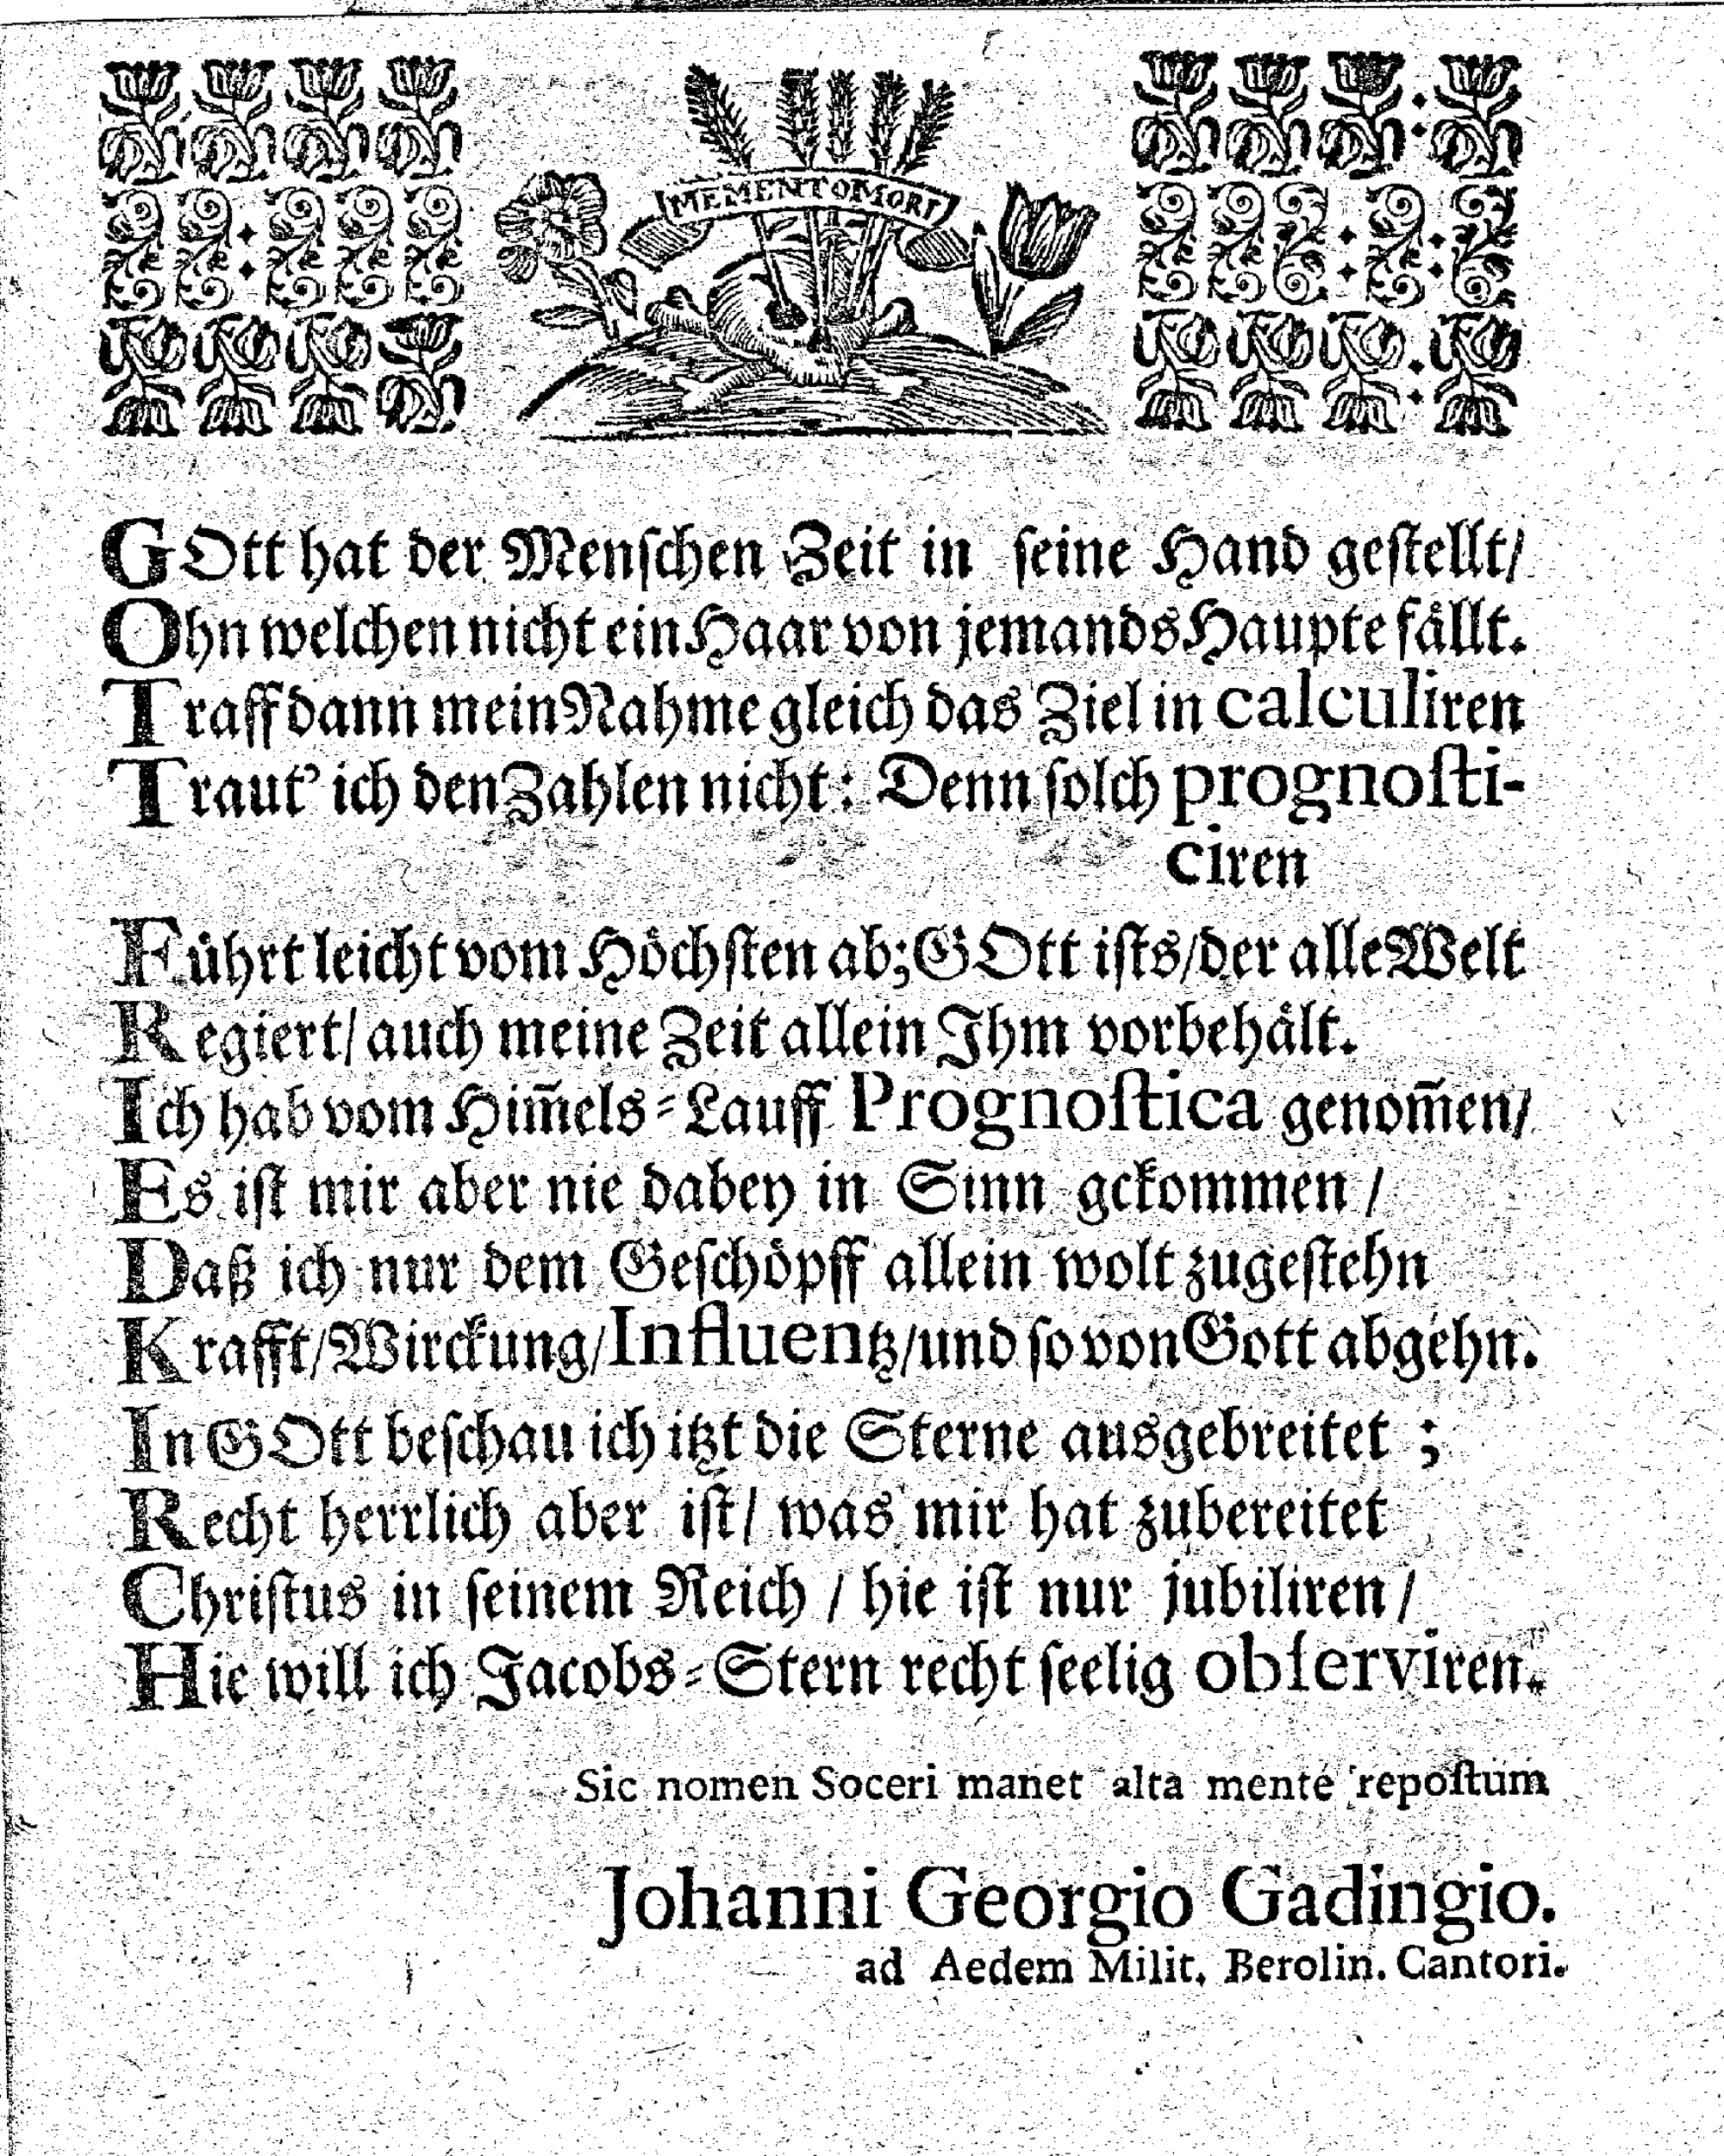 MEMENTO MORI
GOtt hat der Menſchen Zeit in ſeine Hand geſtellt/
Ohn welchen nicht ein Haar von jemands Haupte faͤllt.
Traff dann mein Nahme gleich das Ziel in calculiren
Traut’ ich den Zahlen nicht: Denn ſolch prognoſti-
ciren
Fuͤhrt leicht vom Hoͤchſten ab; GOtt iſts/ der alle Welt
Regiert/ auch meine Zeit allein Ihm vorbehaͤlt.
Ich hab vom Him̃els-Lauff Prognoſtica genom̃en/
Es iſt mir aber nie dabey in Sinn gekommen /
Daß ich nur dem Geſchoͤpff allein wolt zugeſtehn
Krafft/ Wirckung/ Influentz/ und ſo von Gott abgehn.
In GOtt beſchau ich itzt die Sterne ausgebreitet ;
Recht herrlich aber iſt/ was mir hat zubereitet
Chriſtus in ſeinem Reich / hie iſt nur jubiliren /
Hie will ich Jacobs-Stern recht ſeelig obſerviren.
Sic nomen Soceri manet alta mente repoſtum
Johanni Georgio Gadingio.
ad Aedem Milit. Berolin. Cantori.